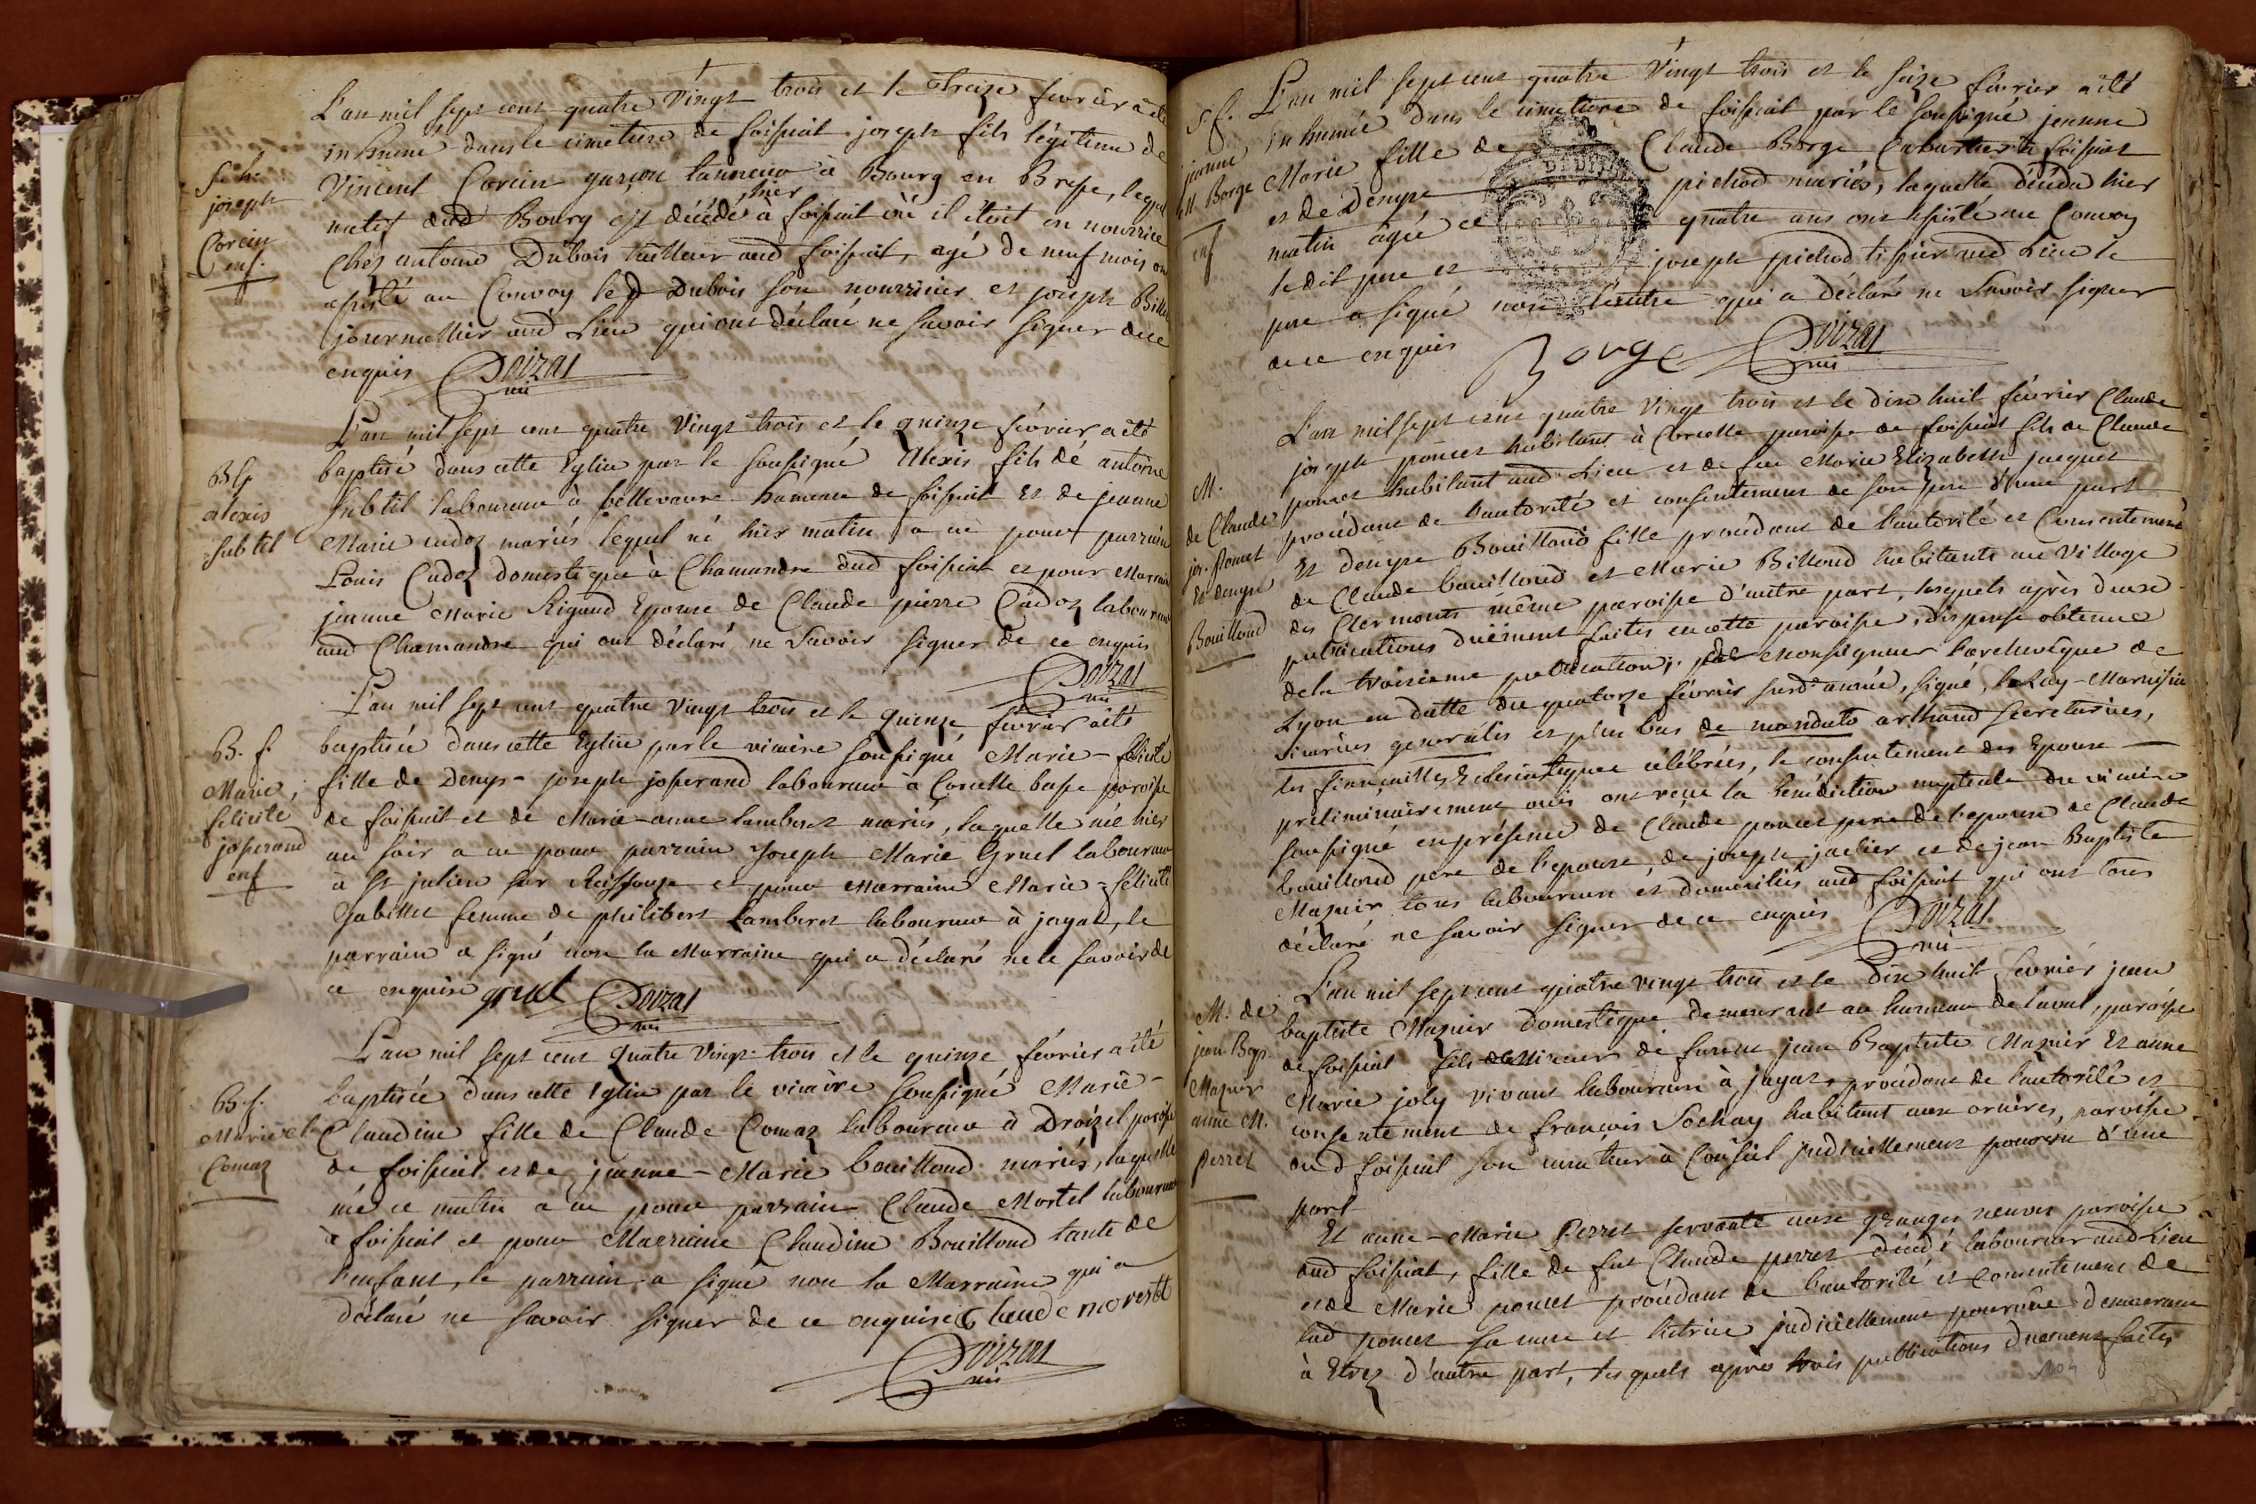 L'an mil sept cent quatre vingt trois et le treize février a été
S. h.
joseph
Corcin
enf.
inhumé dans le cimetiere de foissiat joseph fils légitime de
Vincent Corcin garçon tanneur à Bourg en Bresse, lequel
natif dud Bourg est décédé hier à foissiat où il étoit en nourrice
chés antoine Dubois tailleur aud foissiat, agé de neuf mois ont
assisté au Convoy led Dubois son nourricier et joseph Billet
journallier aud Lieu qui ont déclaré ne savoir signer de ce
enquis Doizat
vic
L'an mil sept cent quatre vingt trois et le quinze février a été
B. f.
alexis
subtil
baptisé dans cette Eglise par le soussigné Alexis fils de antoine
subtil laboureur à bellevavre hameau de foissiat et de jeanne
Marie cadoz mariés lequel né hier matin a eu pour parrain
Louis Cadoz domestique à Chamandre dud foissiat et pour Marraine
jeanne Marie Rigaud Epouse de Claude pierre Cadoz laboureur
aud Chamandre qui ont déclaré ne Savoir signer de ce enquis
Doizat
vic
L'an mil sept cent quatre vingt trois et le quinze février a été
B. f.
Marie
félicité
josserand
enf
baptisée dans cette Eglise par le vicaire soussigné Marie-félicité
fille de Denys-joseph josserand laboureur à Corcelle basse paroisse
de foissiat et de Marie-anne lamberet mariés, laquelle née hier
au soir a eu pour parrain Joseph Marie Gruel laboureur
à St julien sur Reissouse et pour Marraine Marie-félicité
femme de philibert Lamberet laboureur à jayat, le
parrain a signé non la Marraine qui a déclaré ne le savoir de
ce enquise gruel Doizat
vic
L'an mil sept cent quatre vingt trois et le quinze février a été
B. f.
Marie Cl
Comaz
baptisée dans cette Eglise par le vicaire soussigné Marie-
Claudine fille de Claude Comaz laboureur à Droizel paroisse
de foissiat et de jeanne-Marie bouilloud mariés, laquelle
née ce matin a eu pour parrain Claude Mortel laboureur
à foissiat et pour Marraine Claudine Bouilloud tante de
l'enfant, le parrain a signé non la Marraine qui a
déclaré ne savoir signer de ce enquise Claude morestt
Doizat
vic
L'an mil sept cent quatre vingt trois et le seize février a été
S. f.
jeanne
M. Borge
enf
inhumée dans le cimetiere de foissiat par le soussigné jeanne
Marie fille de Claude Borge Cabartier à foissiat
et de Denyse pichod mariés, laquelle décéda hier
matin âgée de quatre ans ont assisté au Convoy
ledit pere et joseph pichod tissier aud Lieu le
pere a signé non l'autre qui a déclaré ne Savoir signer
de ce enquis Borge Doizat
vic
L'an mil sept cent quatre vingt trois et le dix huit février Claude
M.
de Claude
jos. poncet
Et denyse
Bouilloud
joseph poncet habitant à Corcelle paroisse de foissiat fils de Claude
poncet habitant aud Lieu et de feue Marie Elizabeth jacquet
procédant de l'autorité et consentement de son pere d'une part
Et denyse Bouilloud fille procédant de l'autorité et Consentement
de Claude bouilloud et Marie Billoud habitants au Village
des Clermonts même paroisse d'autre part, lesquels après deux
publications duëment faites en cette paroisse, dispense obtenue
de la troisieme publication; par Monseigneur l'archevêque de
Lyon en datte du quatorze février susd. année, signé,
vicaires generalis et plus bas de mandato arthaud secretarius,
les fiançailles Eclesiastiques célébrées, le consentement des Epoux
préliminairement ouïs ont reçu la bénédiction nuptiale du vicaire
soussigné en présence de Claude poncet pere de l'epoux de Claude
bouilloud pere de l'epouse, de joseph jaclier et de jean Baptiste
Maznir tous laboureurs et domiciliés aud foissiat qui ont tous
déclaré ne savoir signer de ce enquis Doizat
vic
L'an mil sept cent quatre vingt trois et le Dix huit fevrier jean
M. de
jean-Bap.
Maznir
anne M.
perret
baptiste Maznir domestique demeurant au hameau de laval, paroisse
de foissiat fils mineur de furent jean Baptiste Maznir Et anne
Marie joly vivant laboureurs à jayat, procédant de l'autorité et
consentement de françois Sochay habitant aux ornieres, paroisse
dud foissiat son curateur à Conseil judiciellement pourvu d'une
part
Et anne-Marie Perret servante aux granges neuves paroisse
aud foissiat, fille de feu Claude perret décédé laboureur aud Lieu
et de Marie poncet procédant de l'autorité et Consentement de
lad poncet sa mere et tutrice judiciellement pourvûe demeurant
à Etrez d'autre part, lesquels après trois publications duement faites
104